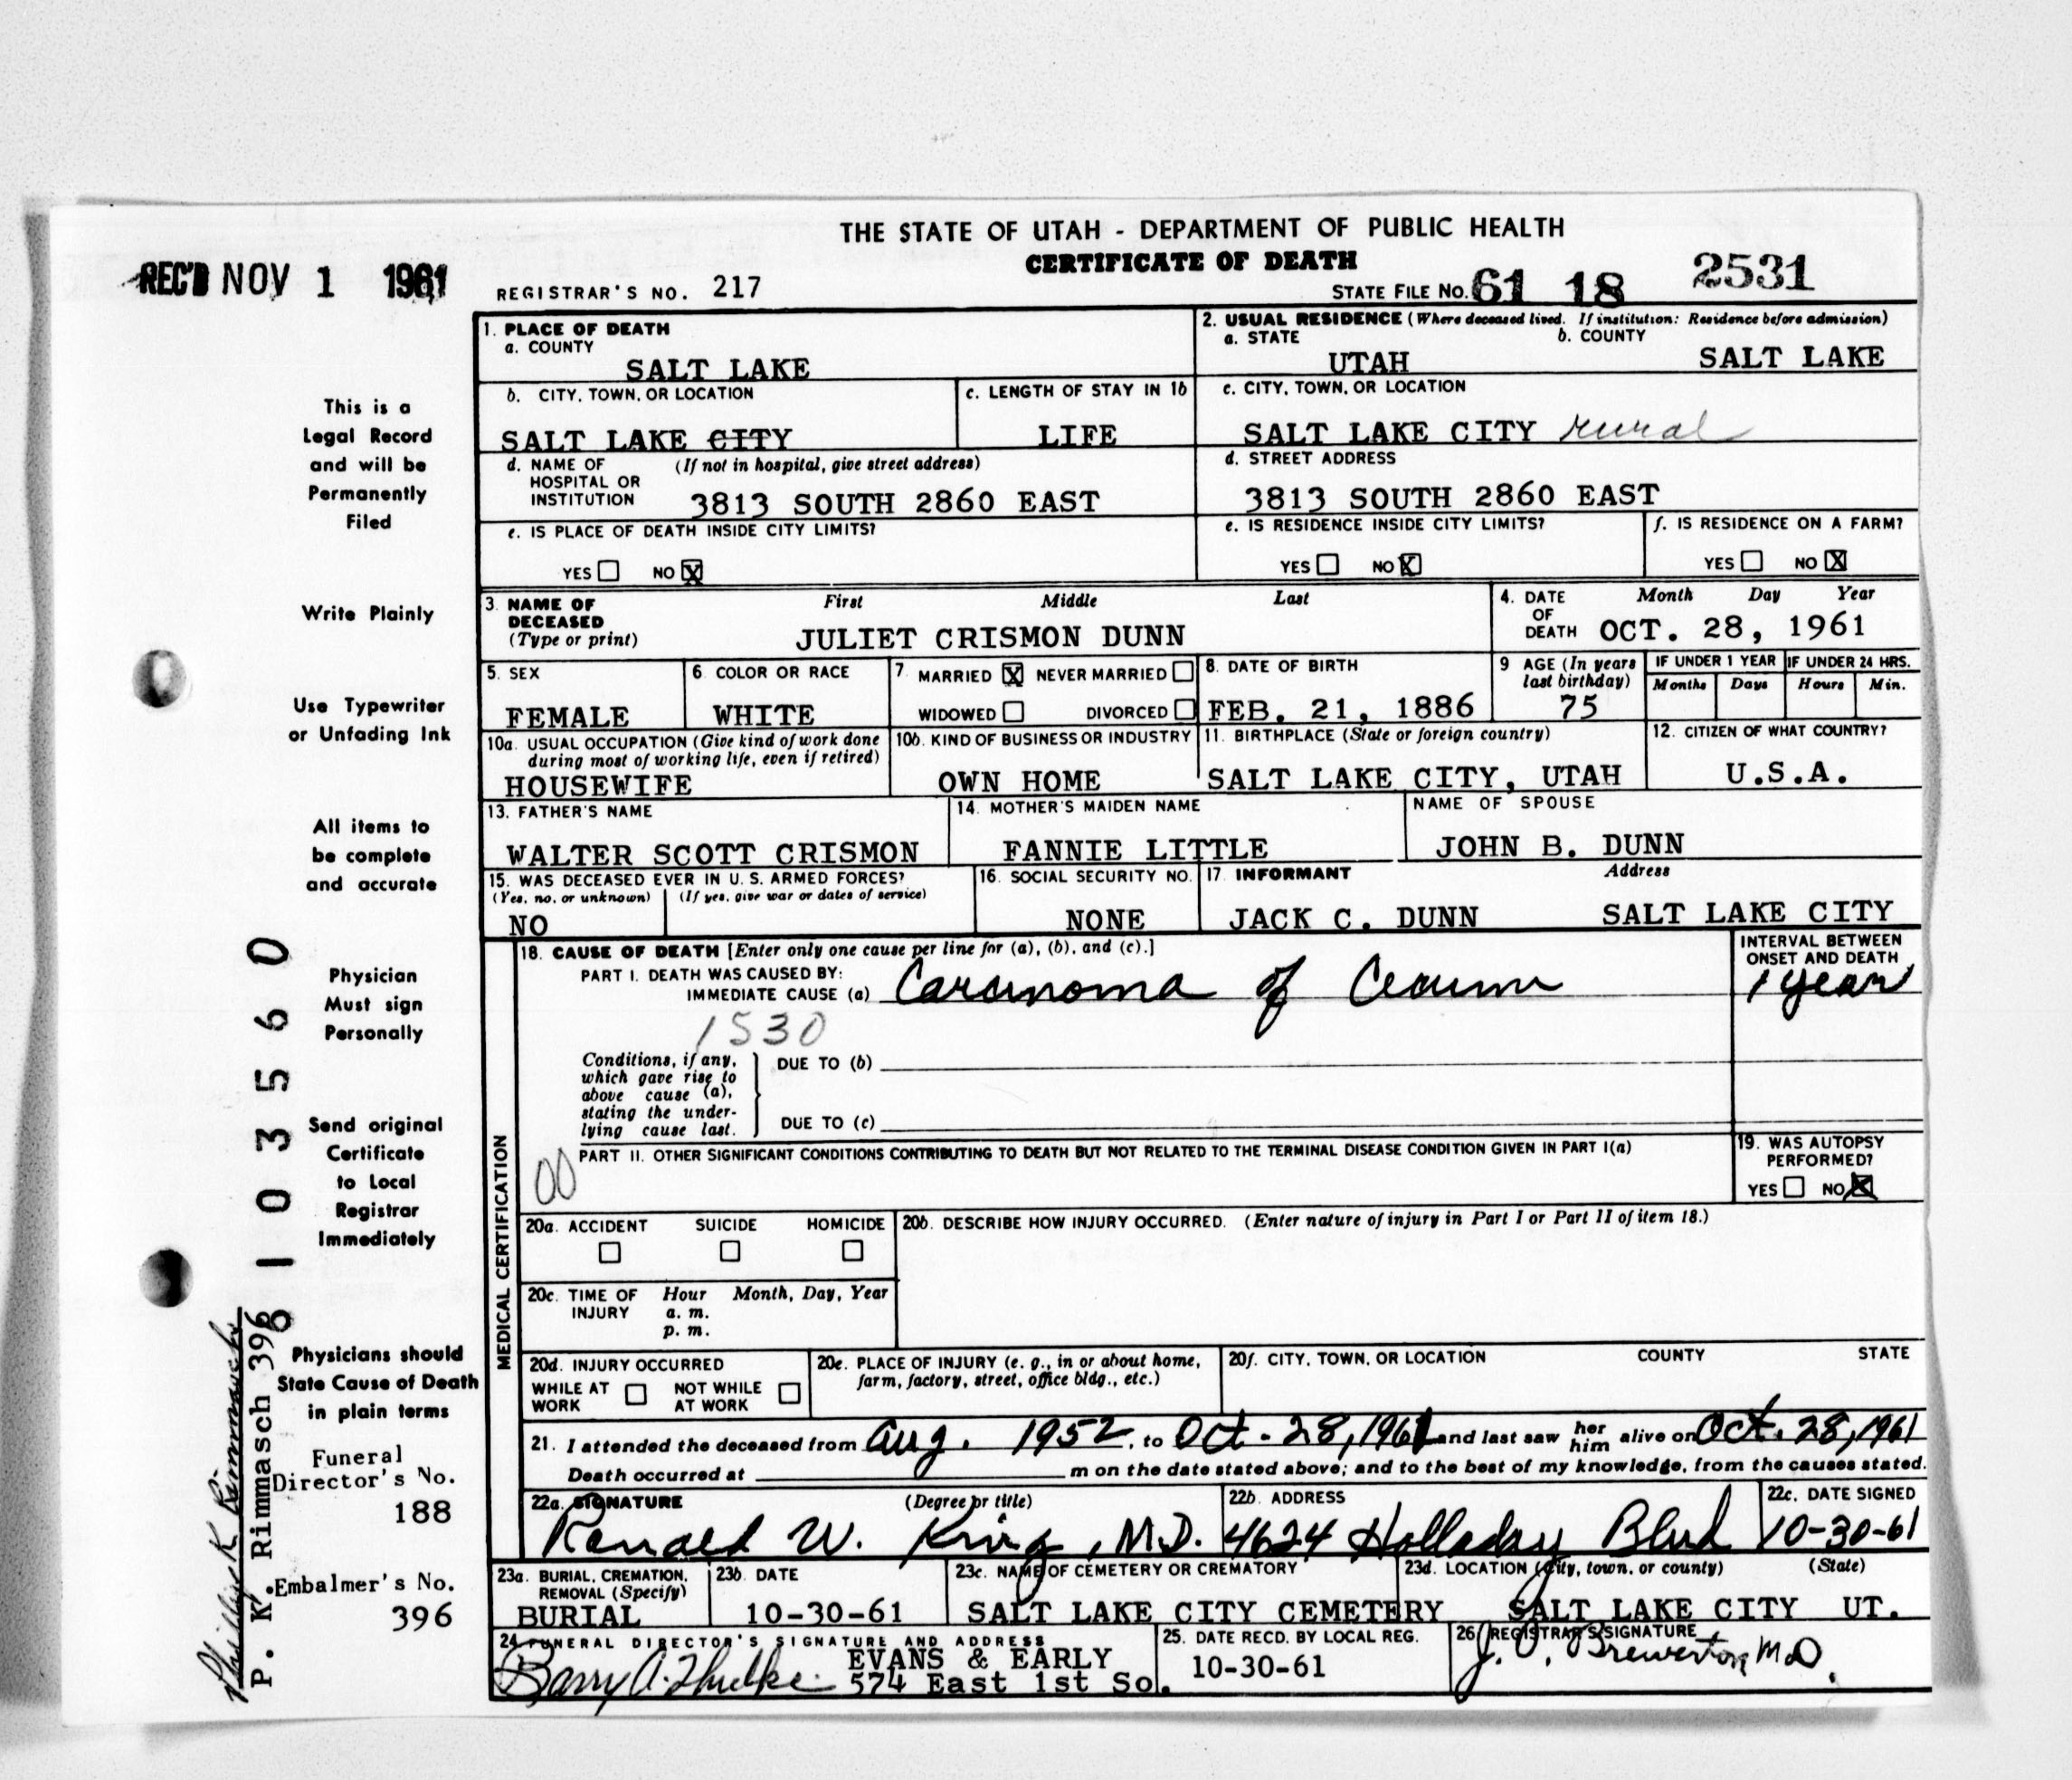 THE STATE OF UTAH - DEPARTMENT OF PUBLIC HEALTH
CERTIFICATE OF DEATH
REC'D NOV 1 1961
REGISTRAR'S NO. 217
STATE FILE NO. 61 18 2531
1. PLACE OF DEATH
a. COUNTY
SALT LAKE
2. USUAL RESIDENCE (Where deceased lived. If institution: Residence before admission)
a. STATE
UTAH
b. COUNTY
SALT LAKE
b. CITY, TOWN, OR LOCATION
SALT LAKE CITY
c. LENGTH OF STAY IN 1b
LIFE
c. CITY, TOWN, OR LOCATION
SALT LAKE CITY rural
d. NAME OF (If not in hospital, give street address)
HOSPITAL OR
INSTITUTION 3813 SOUTH 2860 EAST
d. STREET ADDRESS
3813 SOUTH 2860 EAST
e. IS PLACE OF DEATH INSIDE CITY LIMITS?
YES NO X
e. IS RESIDENCE INSIDE CITY LIMITS?
YES NO X
f. IS RESIDENCE ON A FARM?
YES NO X
3. NAME OF DECEASED
(Type or print)
First Middle Last
JULIET CRISMON DUNN
4. DATE OF DEATH
Month Day Year
OCT. 28, 1961
5. SEX
FEMALE
6. COLOR OR RACE
WHITE
7. MARRIED X NEVER MARRIED
WIDOWED DIVORCED
8. DATE OF BIRTH
FEB. 21, 1886
9 AGE (In years last birthday)
75
IF UNDER 1 YEAR
Months Days
IF UNDER 24 HRS.
Hours Min.
10a. USUAL OCCUPATION (Give kind of work done
during most of working life, even if retired)
HOUSEWIFE
10b. KIND OF BUSINESS OR INDUSTRY
OWN HOME
11. BIRTHPLACE (State or foreign country)
SALT LAKE CITY, UTAH
12. CITIZEN OF WHAT COUNTRY?
U.S.A.
13. FATHER'S NAME
WALTER SCOTT CRISMON
14. MOTHER'S MAIDEN NAME
FANNIE LITTLE
NAME OF SPOUSE
JOHN B. DUNN
15. WAS DECEASED EVER IN U. S. ARMED FORCES?
(Yes, no, or unknown) (If yes, give war or dates of service)
NO
16. SOCIAL SECURITY NO.
NONE
17. INFORMANT Address
JACK C. DUNN SALT LAKE CITY
MEDICAL CERTIFICATION
18. CAUSE OF DEATH [Enter only one cause per line for (a), (b), and (c).]
PART I. DEATH WAS CAUSED BY:
IMMEDIATE CAUSE (a) Carcinoma of Cecum
INTERVAL BETWEEN
ONSET AND DEATH
1 year
1530
Conditions, if any,
which gave rise to
above cause (a),
stating the under-
lying cause last.
DUE TO (b)
DUE TO (c)
00
PART II. OTHER SIGNIFICANT CONDITIONS CONTRIBUTING TO DEATH BUT NOT RELATED TO THE TERMINAL DISEASE CONDITION GIVEN IN PART I(a)
19. WAS AUTOPSY
PERFORMED?
YES NO X
20a. ACCIDENT SUICIDE HOMICIDE
20b. DESCRIBE HOW INJURY OCCURRED. (Enter nature of injury in Part I or Part II of item 18.)
20c. TIME OF INJURY
Hour Month, Day, Year
a. m.
p. m.
20d. INJURY OCCURRED
WHILE AT WORK NOT WHILE AT WORK
20e. PLACE OF INJURY (e. g., in or about home,
farm, factory, street, office bldg., etc.)
20f. CITY, TOWN, OR LOCATION COUNTY STATE
21. I attended the deceased from Aug. 1952, to Oct. 28, 1961 and last saw her him alive on Oct. 28, 1961
Death occurred at m on the date stated above; and to the best of my knowledge, from the causes stated.
22a. SIGNATURE (Degree or title)
Ronald W. King, M.D.
22b. ADDRESS
4624 Holladay Blvd
22c. DATE SIGNED
10-30-61
23a. BURIAL, CREMATION,
REMOVAL (Specify)
BURIAL
23b. DATE
10-30-61
23c. NAME OF CEMETERY OR CREMATORY
SALT LAKE CITY CEMETERY
23d. LOCATION (City, town, or county) (State)
SALT LAKE CITY UT.
24 FUNERAL DIRECTOR'S SIGNATURE AND ADDRESS
EVANS & EARLY
Barry A. 574 East 1st So.
25. DATE RECD. BY LOCAL REG.
10-30-61
26 REGISTRAR'S SIGNATURE
J. O. Brewerton, M.D.
This is a
Legal Record
and will be
Permanently
Filed
Write Plainly
Use Typewriter
or Unfading Ink
All items to
be complete
and accurate
Physician
Must sign
Personally
Send original
Certificate
to Local
Registrar
Immediately
Physicians should
State Cause of Death
in plain terms
Funeral
Director's No.
188
Embalmer's No.
396
6103560
P. K. Rimmasch 396
Phillip K Rimmasch